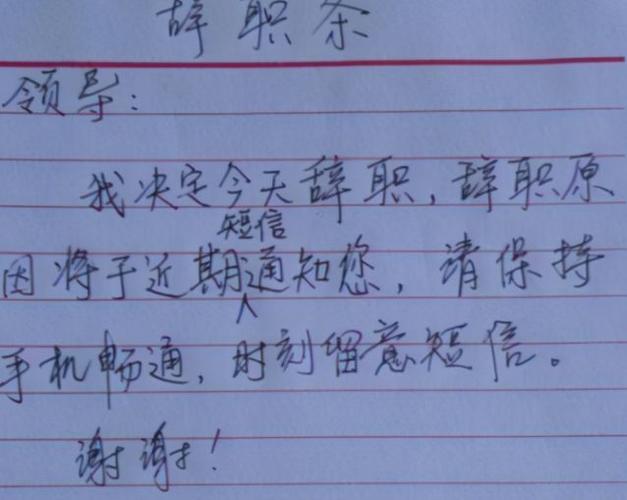 辞职条
领导：
我决定今天辞职，辞职原
因将于近期短信通知您，请保持
手机畅通，时刻留意短信。
谢谢！